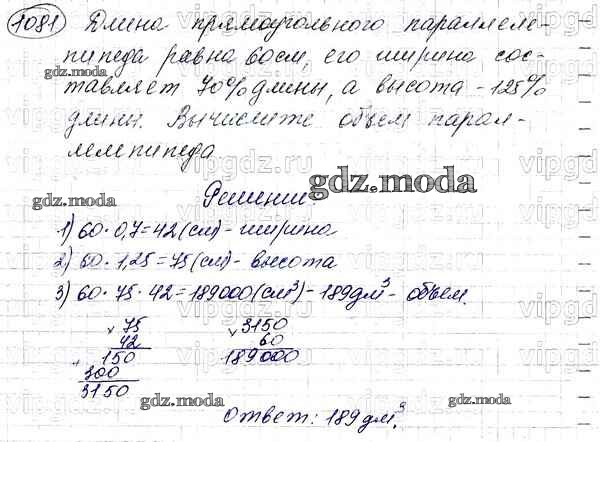 1081 Длина прямоугольного параллеле-
пипеда равна 60см, его ширина сос-
gdz.moda
тавляет 70% длины, а высота - 125%
длины. Вычислите объем парал-
лелепипеда
vipgdz.ru
gdz.moda
Решение:
gdz.moda
1) 60 · 0,7 = 42 (см) - ширина
2) 60 · 1,25 = 75 (см) - высота
gdz.moda
3) 60 · 75 · 42 = 189000 (см³) - 189дм³ - объем.
75 3150
× 42 × 60
+ 150 189000
300
3150
gdz.moda
gdz.moda
Ответ: 189 дм³.